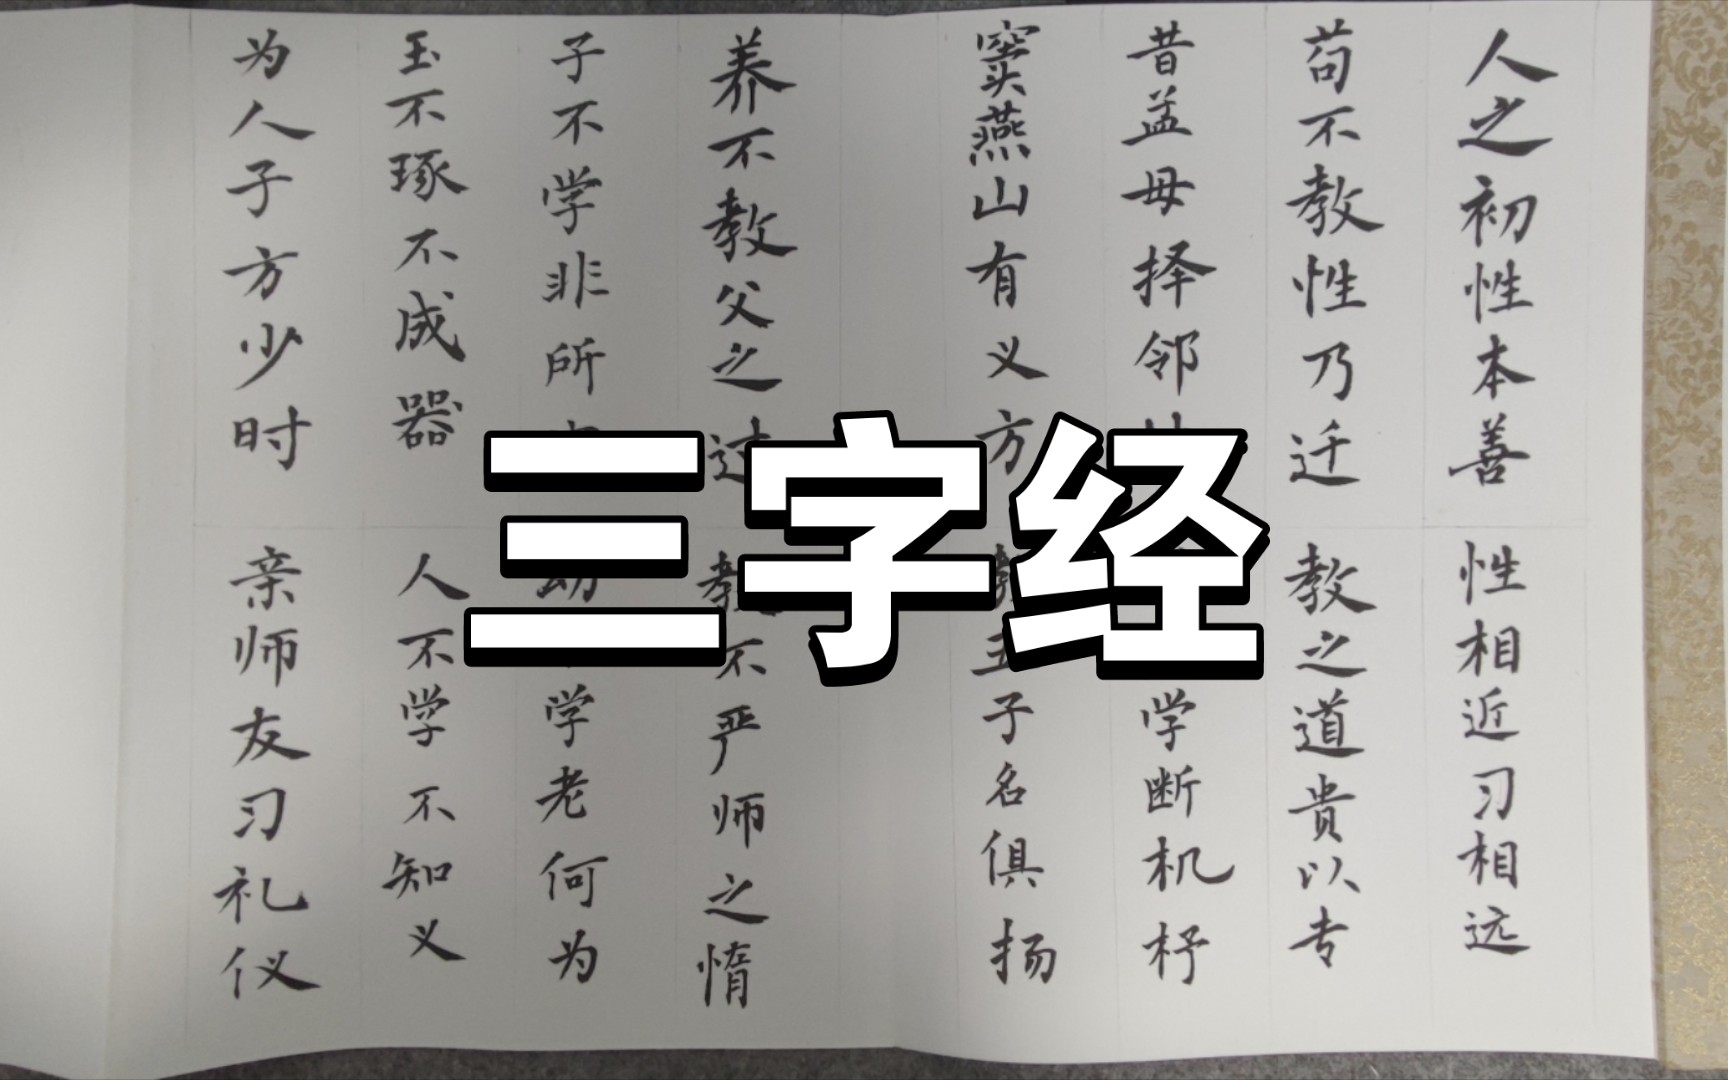 三字经
人之初性本善 性相近习相远
苟不教性乃迁 教之道贵以专
昔孟母择邻 学断机杼
窦燕山有义方 教五子名俱扬
养不教父之过 教不严师之惰
子不学非所 幼学老何为
玉不琢不成器 人不学不知义
为人子方少时 亲师友习礼仪